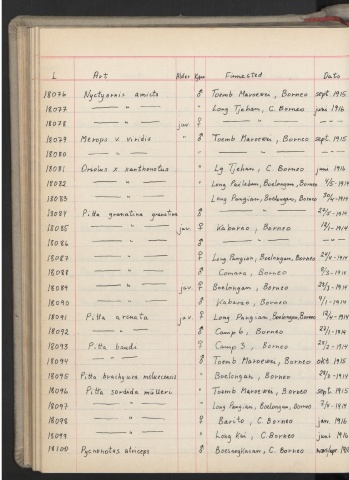 L Art Alder Kjønn Finnested Dato
18076 Nyctyornis amicta ♂ Toemb Maroewei, Borneo sept. 1915
18077 — " — " Long Tjeham, C. Borneo juni 1916
18078 — " — juv. ♀ — " —
18079 Merops v. viridis " ♂ Toemb Maroewei, Borneo sept. 1915
18080 — " — " — " —
18081 Oriolus x xanthonotus " Lg Tjeham, C. Borneo juni 1916
18082 — " — " Long Boelongan, Borneo 4/5-1914
18083 — " — Long Pangian, Boelongan, Borneo 30/4-1914
18084 Pitta granatina granatina ♂ — " — 1914
18085 — " — juv. ♀ Kabarao, Borneo 1/1-1914
18086 — " — ♂ — " —
18087 — " — ♀ Long Pangian, Boelongan, Borneo 24/4-1914
18088 — " — ♂ Borneo 1914
18089 — " — juv. ♀ Boelongan, Borneo 1914
18090 — " — ♂ Kabarao, Borneo 9/1-1914
18091 Pitta arcuata juv. ♀ Long Pangian, Boelongan, Borneo 12/4-1914
18092 — " — ♂ Camp 6, Borneo 1914
18093 Pitta baudi ♀ Camp 3, Borneo 1914
18094 — " — ♂ Toemb Maroewei, Borneo okt. 1915
18095 Pitta brachyura moluccensis " Boelongan, Borneo 1914
18096 Pitta sordida mülleri " Toemb Maroewei, Borneo sept. 1915
18097 — " — " Long Pangian, Boelongan, Borneo 1914
18098 — " — ♀ Barito, C. Borneo jan. 1916
18099 — " — " Long Kai, C. Borneo juni 1916
18100 Pycnonotus atriceps ♂ Borneo